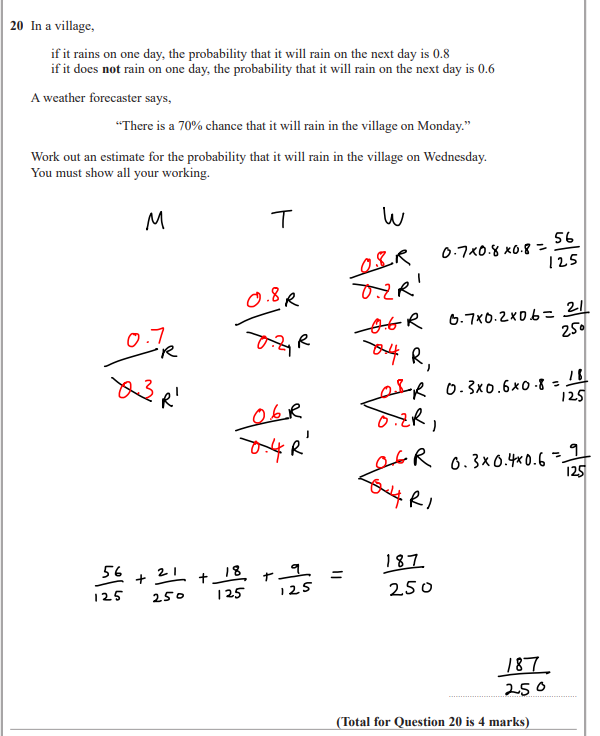 20 In a village,
if it rains on one day, the probability that it will rain on the next day is 0.8
if it does not rain on one day, the probability that it will rain on the next day is 0.6
A weather forecaster says,
“There is a 70% chance that it will rain in the village on Monday.”
Work out an estimate for the probability that it will rain in the village on Wednesday.
You must show all your working.
M T W
0.8 R 0.7×0.8×0.8 = 56/125
0.2 R'
0.8 R
0.6 R 0.7×0.2×0.6 = 21/250
0.7 R
0.2 R
0.4 R,
0.3 R'
0.8 R 0.3×0.6×0.8 = 18/125
0.6 R
0.2 R,
0.4 R'
0.6 R 0.3×0.4×0.6 = 9/125
0.4 R,
56/125 + 21/250 + 18/125 + 9/125 = 187/250
187/250
(Total for Question 20 is 4 marks)